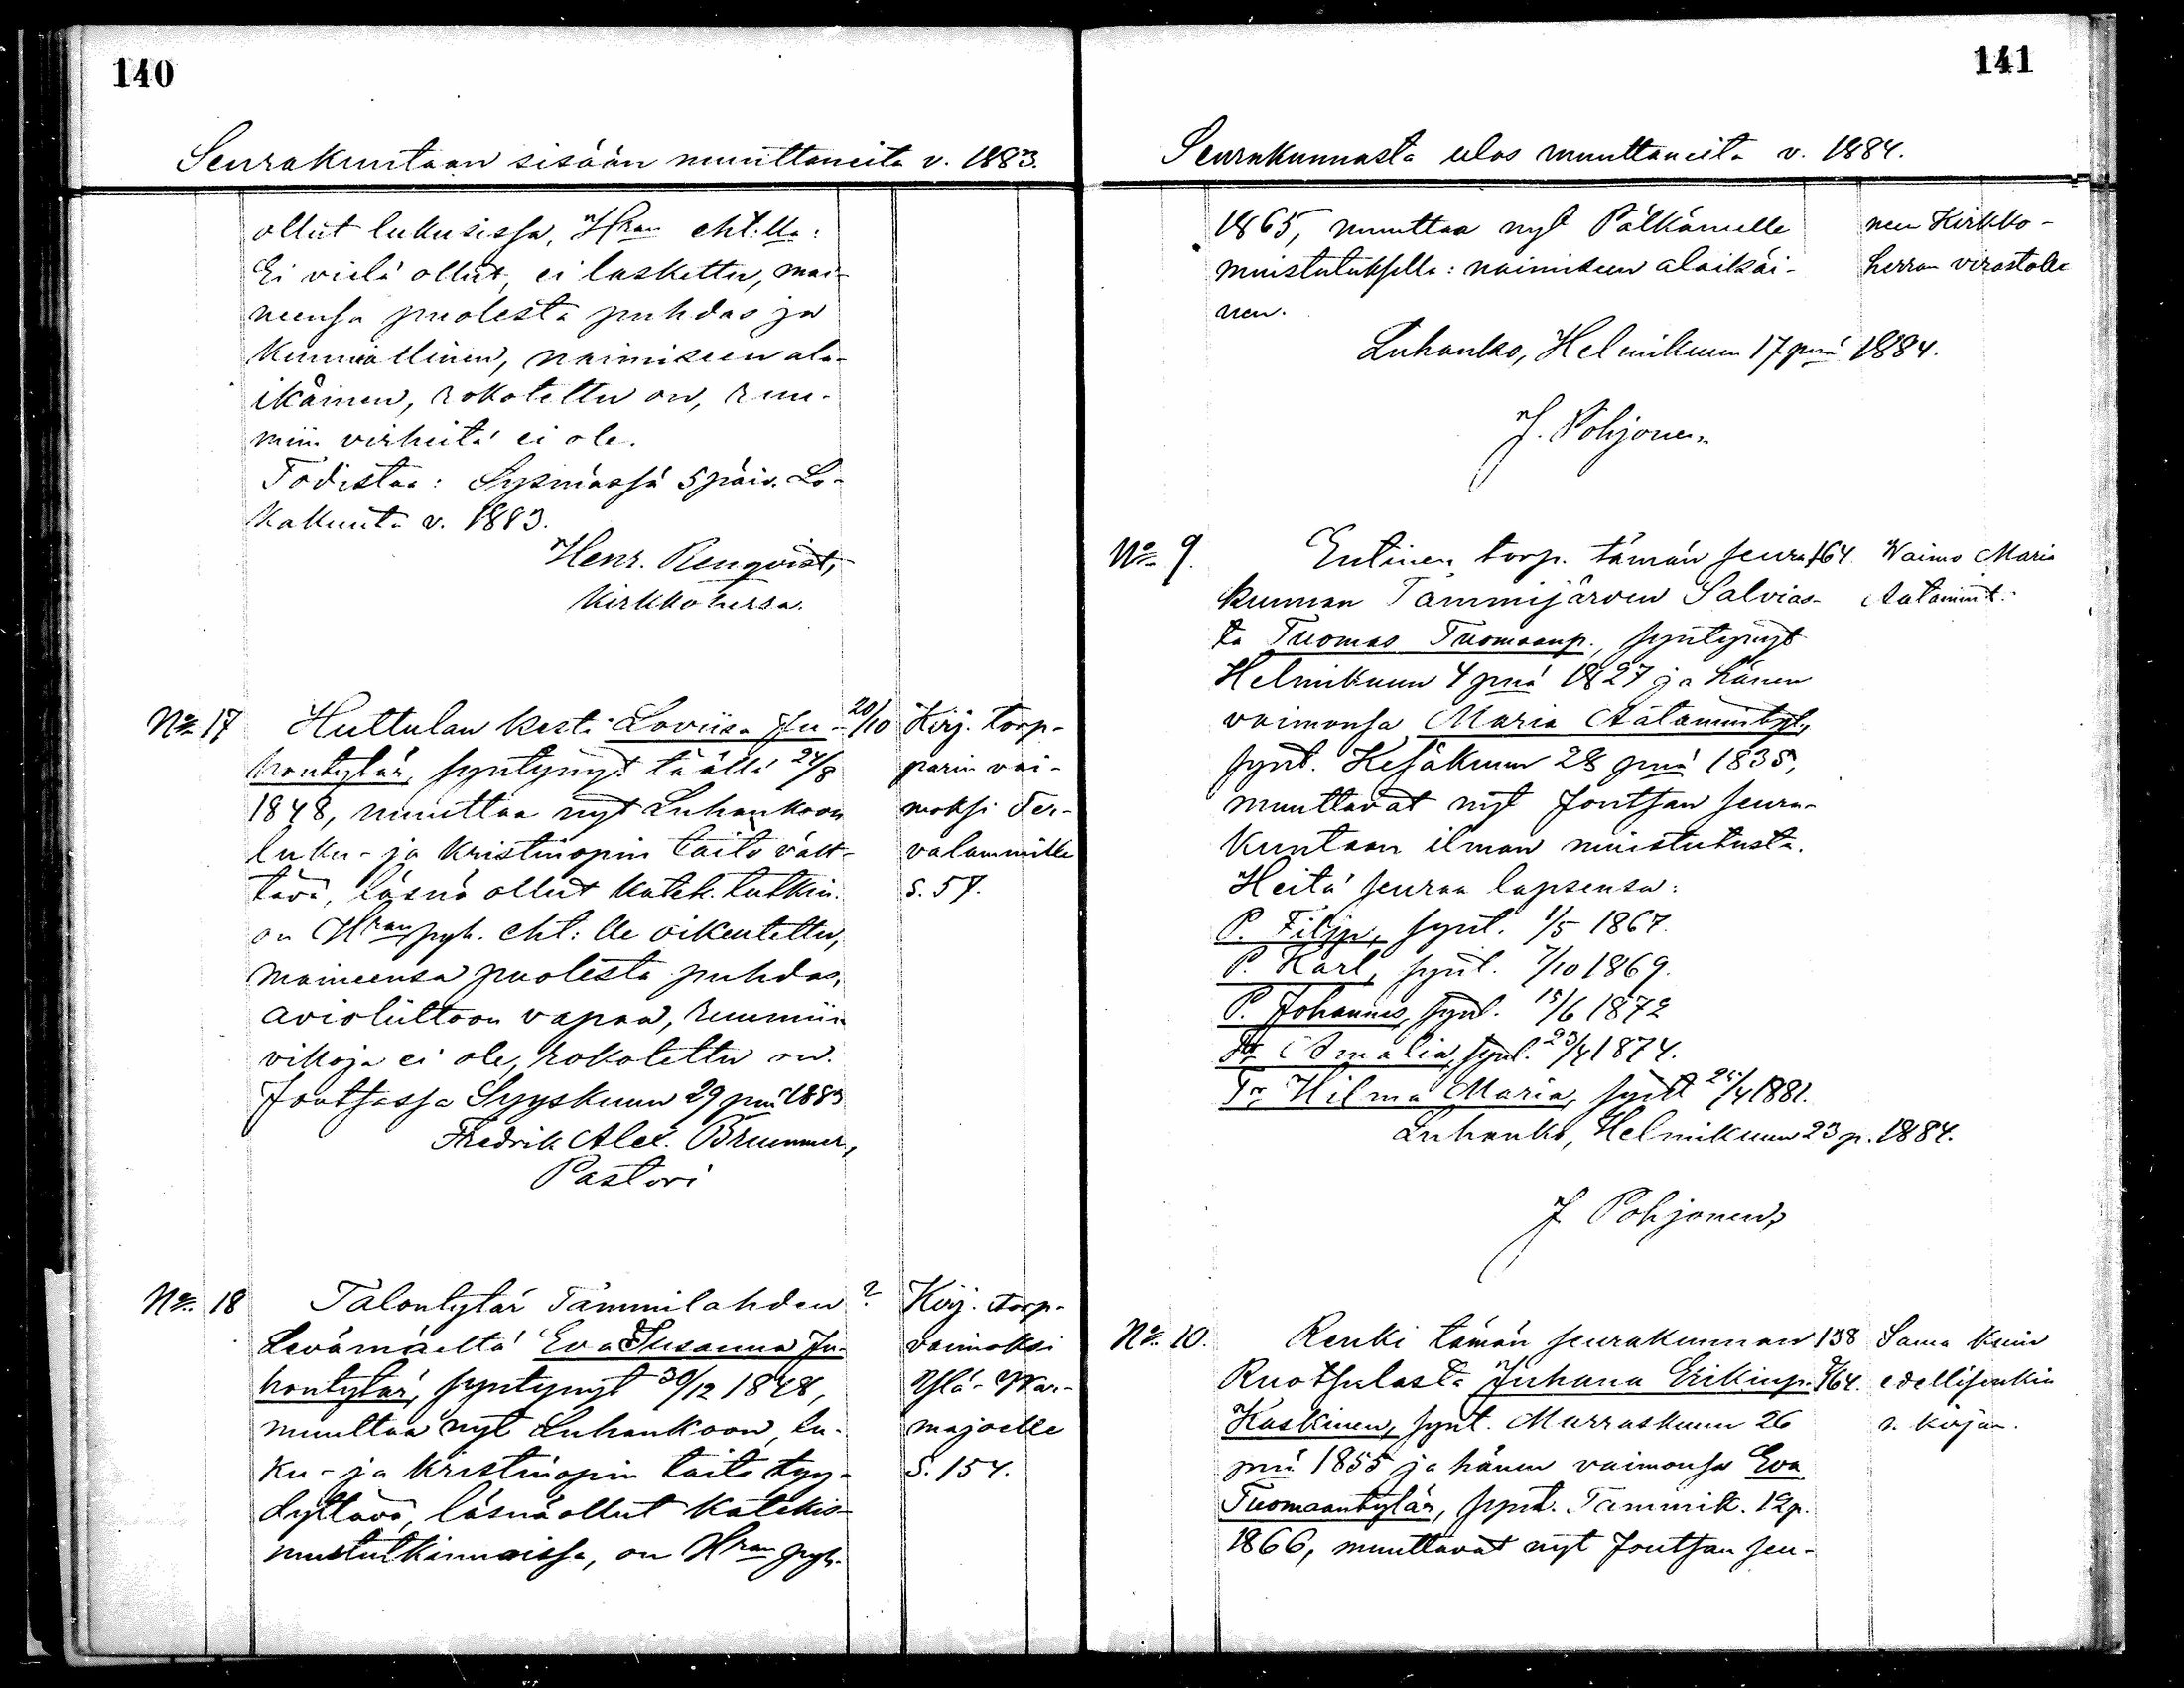 140
Seurakuntaan sisään muuttaneita v. 1883.
ollut lukusissa, Hran eht:lla:
Ei vielä ollut, ei laskettu, mai-
neensa puolesta puhdas ja
kunniallinen, naimiseen ala-
ikäinen, rokotettu on, ruu-
miin virheitä ei ole.
Todistaa: Sysmässä 5 päiv. Lo-
kakuuta v. 1883.
Henr. Renqvist,
Kirkkoherra.
No 17
Huttulan kesti Loviisa Ju-
hontytär, syntynyt täällä 24/8
1848, muuttaa nyt Luhankoon
luku- ja kristinopin taito vält-
tävä, läsnä ollut katek. tutkin.
on Hran pyh. eht:lle oikeutettu,
maineensa puolesta puhdas,
avioliittoon vapaa, ruumiin
vikoja ei ole, rokotettu on.
Joutsassa Syyskuun 29 pnä 1883
Fredrik Alex. Brummer,
Pastori
20/10
Kirj. torp-
parin vai-
moksi Ter-
valammille
S. 57.
No 18
Talontytär Tammilahden
Levämäeltä Eva Susanna Ju-
hontytär, syntynyt 30/12 1848,
muuttaa nyt Luhankoon, lu-
ku- ja kristinopin taito tyy-
dyttävä, läsnäollut katekis-
mustutkinnoissa, on Hran pyh.
?
Kirj. torp-
vaimoksi
Ylä-
majoelle
S. 154.
141
Seurakunnasta ulos muuttaneita v. 1884.
1865, muuttaa nyt Pälkäneelle
muistutuksella: naimiseen alaikäi-
nen.
Luhanko, Helmikuun 17 pnä 1884.
J. Pohjonen
neen Kirkko-
herran virastolle
No 9.
Entinen torp. tämän seura-
kunnan Tammijärven Salvias-
ta Tuomas Tuomaanp., syntynyt
Helmikuun 4 pnä 1827 ja hänen
vaimonsa Maria Aatamintyt.,
synt. Kesäkuun 28 pnä 1835,
muuttavat nyt Joutsan seura-
kuntaan ilman muistutusta.
Heitä seuraa lapsensa:
P. Filip, synt. 1/5 1867.
P. Karl, synt. 7/10 1869.
P. Johannes, synt. 15/6 1872
Tr Amalia, synt. 23/4 1874.
Tr Hilma Maria, synt 25/4 1881.
Luhanko, Helmikuun 23 p. 1884.
J Pohjonen
164.
Waimo Maria
Aatamint.
No 10.
Renki tämän seurakunnan
Ruotsulasta Juhana Erikinp.
Koskinen, synt. Marraskuun 26
pnä 1855 ja hänen vaimonsa Eva
Tuomaantytär, synt. Tammik. 12 p.
1866, muuttavat nyt Joutsan seu-
138
164.
Sama kuin
edellisenkin
s. kirjan.